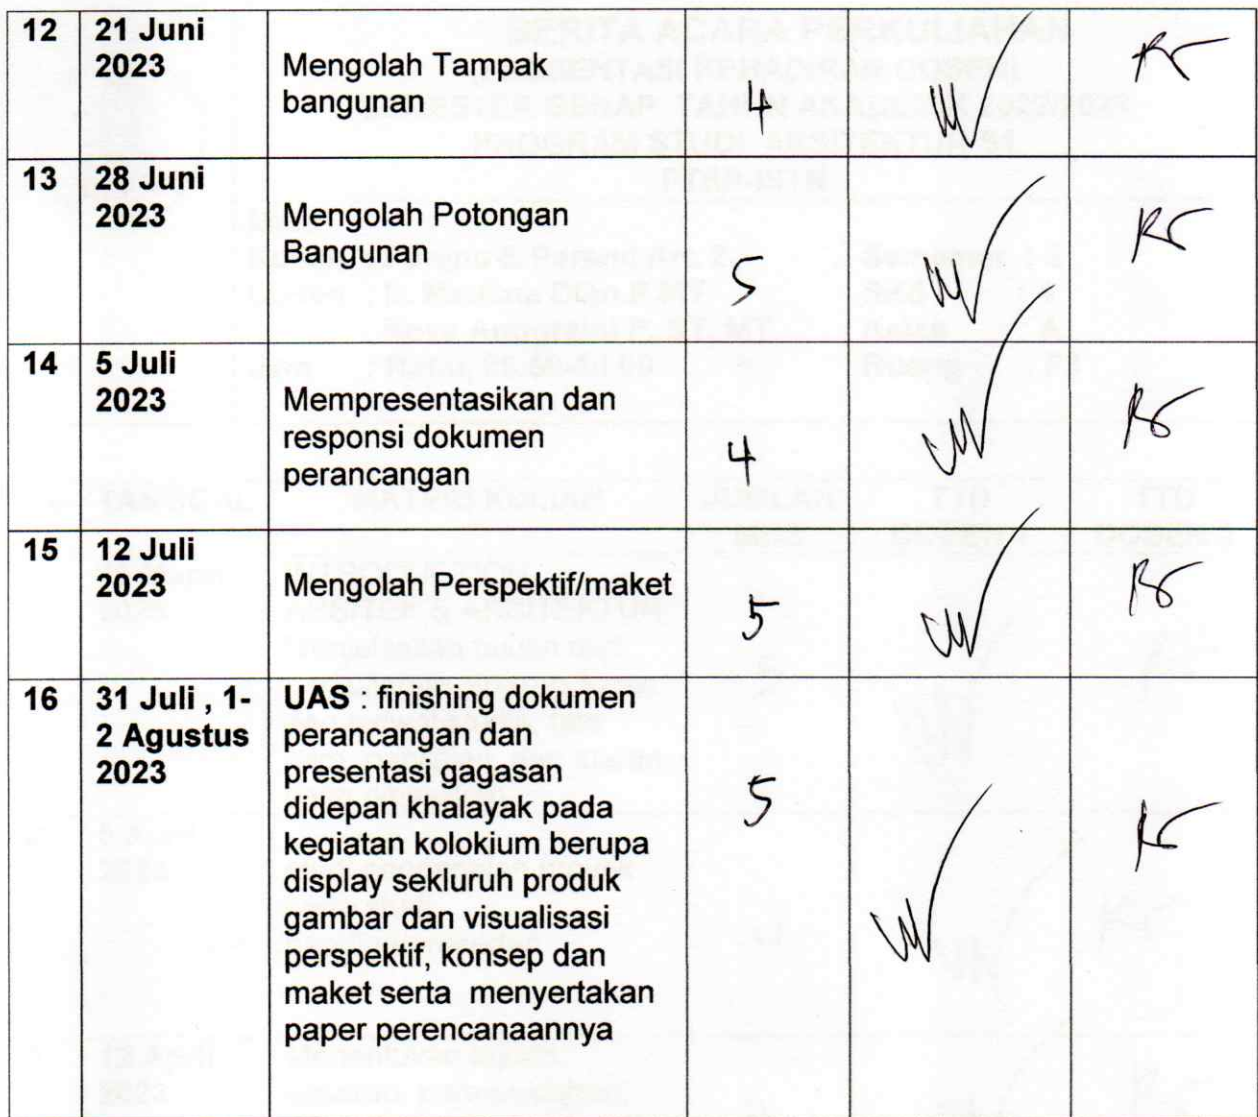 12 21 Juni 2023 Mengolah Tampak bangunan 4
13 28 Juni 2023 Mengolah Potongan Bangunan 5
14 5 Juli 2023 Mempresentasikan dan responsi dokumen perancangan 4
15 12 Juli 2023 Mengolah Perspektif/maket 5
16 31 Juli , 1-
2 Agustus
2023
UAS : finishing dokumen
perancangan dan
presentasi gagasan
didepan khalayak pada
kegiatan kolokium berupa
display sekluruh produk
gambar dan visualisasi
perspektif, konsep dan
maket serta menyertakan
paper perencanaannya
5